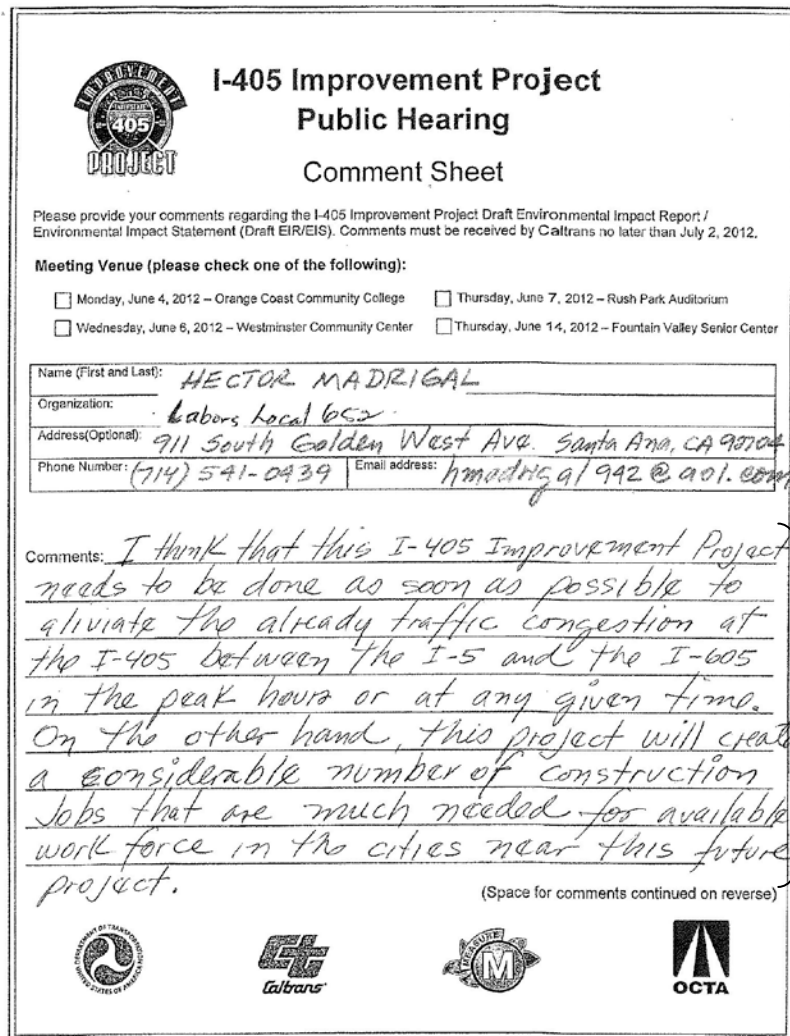 IMPROVEMENT
INTERSTATE
405
PROJECT
I-405 Improvement Project
Public Hearing
Comment Sheet
Please provide your comments regarding the I-405 Improvement Project Draft Environmental Impact Report /
Environmental Impact Statement (Draft EIR/EIS). Comments must be received by Caltrans no later than July 2, 2012.
Meeting Venue (please check one of the following):
Monday, June 4, 2012 – Orange Coast Community College
Thursday, June 7, 2012 – Rush Park Auditorium
Wednesday, June 6, 2012 – Westminster Community Center
Thursday, June 14, 2012 – Fountain Valley Senior Center
Name (First and Last): HECTOR MADRIGAL
Organization: Labors Local 652
Address(Optional): 911 South Golden West Ave. Santa Ana, CA 92704
Phone Number: (714) 541-0439 Email address: hmadrigal942@aol.com
Comments: I think that this I-405 Improvement Project
needs to be done as soon as possible to
aliviate the already traffic congestion at
the I-405 between the I-5 and the I-605
in the peak hours or at any given time.
On the other hand, this project will create
a considerable number of construction
Jobs that are much needed for available
work force in the cities near this future
project.
(Space for comments continued on reverse)
DEPARTMENT OF TRANSPORTATION
UNITED STATES OF AMERICA
Caltrans
MEASURE
M
OCTA